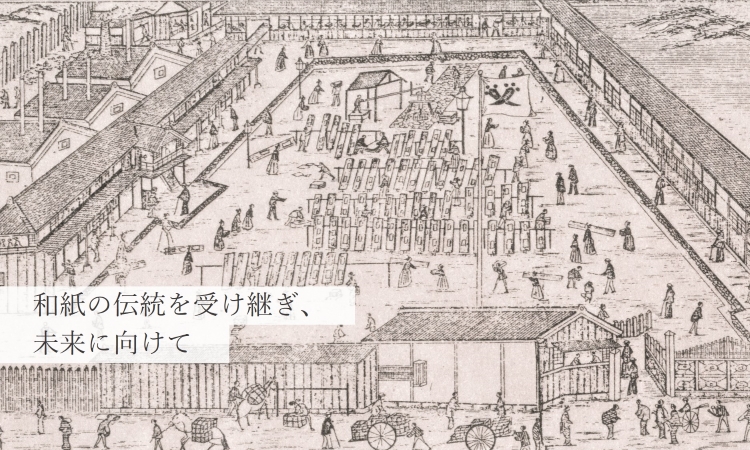 和紙の伝統を受け継ぎ、
未来に向けて